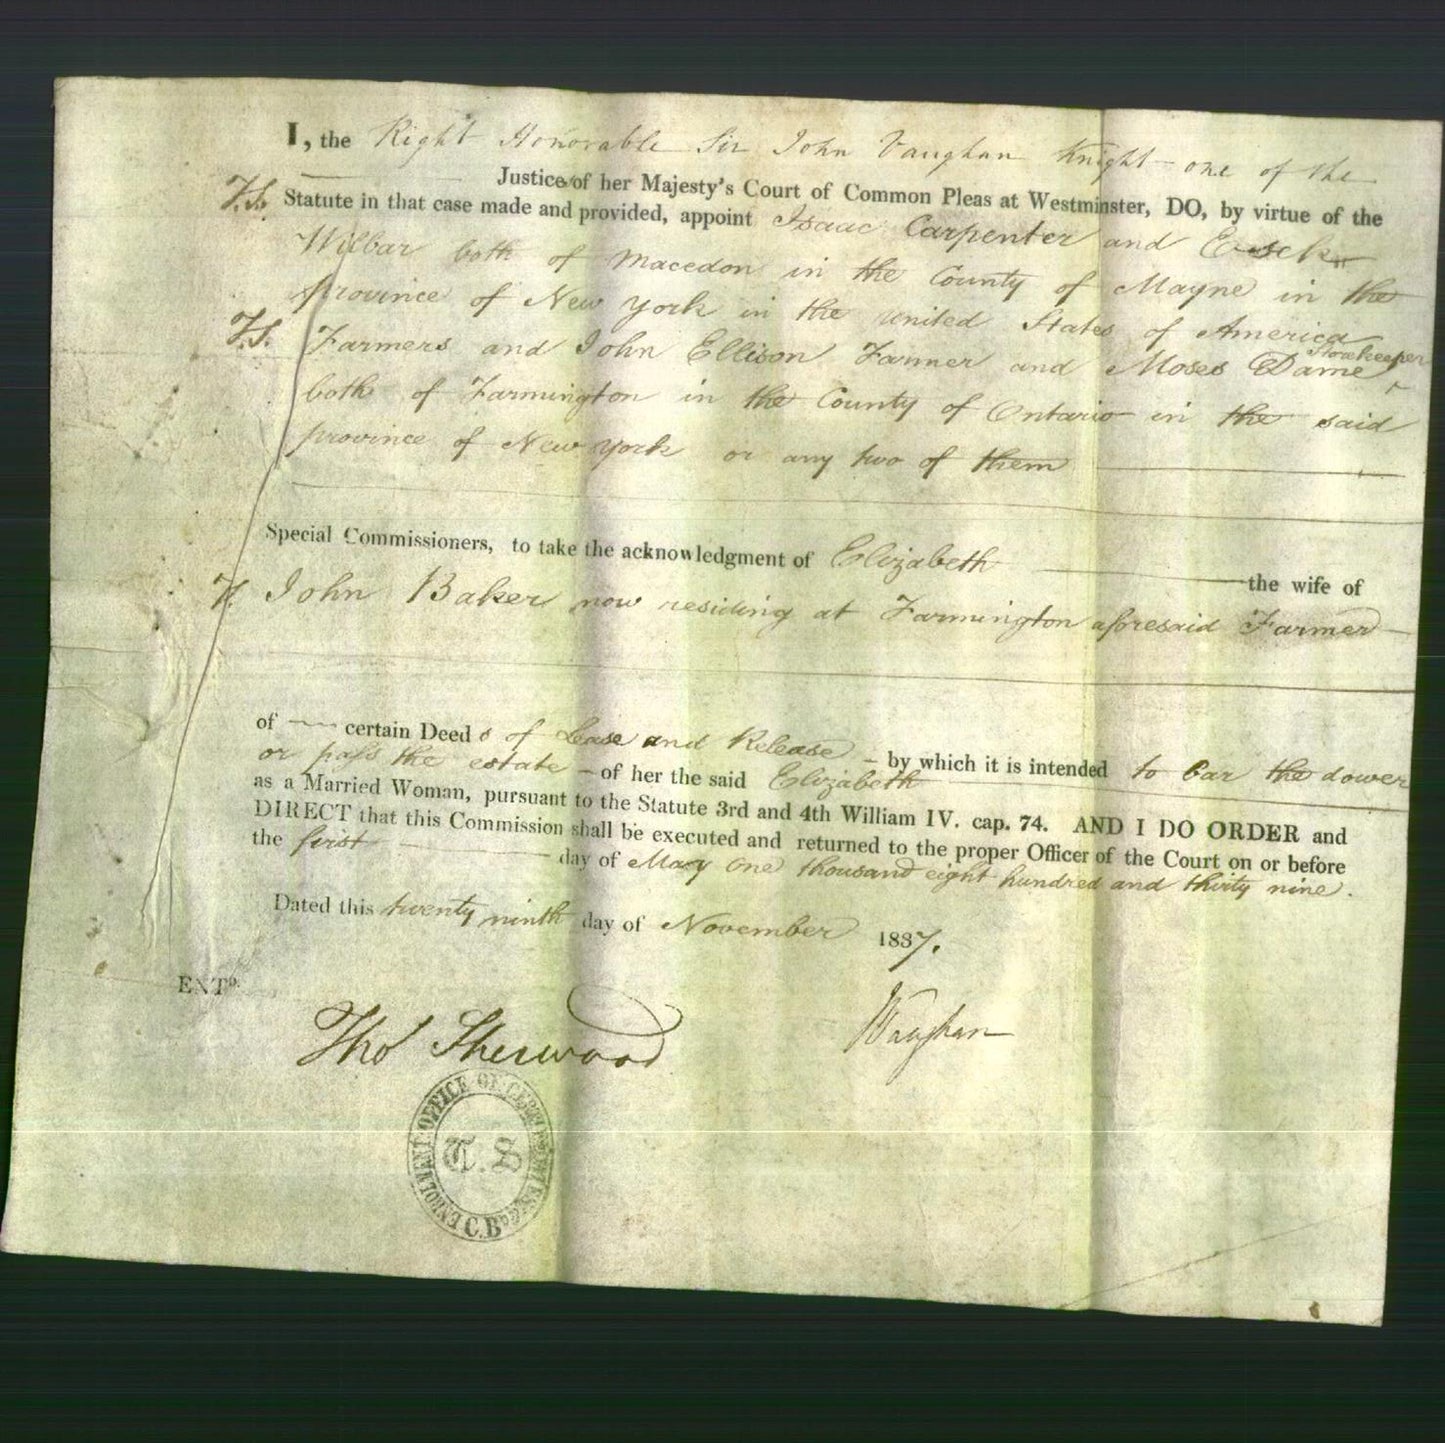 I, the Right Honorable Sir John Vaughan Knight one of the
Justices of her Majesty's Court of Common Pleas at Westminster, DO, by virtue of the
T.S. Statute in that case made and provided, appoint Isaac Carpenter and
Wilbar both of Macedon in the County of Mayne in the
province of New York in the united States of America
T.S. Farmers and John Ellison Farmer and Moses Dame Storekeeper
both of Farmington in the County of Ontario in the said
province of New York or any two of them
Special Commissioners, to take the acknowledgment of Elizabeth the wife of
John Baker now residing at Farmington aforesaid Farmer
of certain Deeds of Lease and Release by which it is intended to bar the dower
or pass the estate of her the said Elizabeth
as a Married Woman, pursuant to the Statute 3rd and 4th William IV. cap. 74. AND I DO ORDER and
DIRECT that this Commission shall be executed and returned to the proper Officer of the Court on or before
the first day of May One thousand eight hundred and thirty nine.
Dated this twenty ninth day of November 1837.
EXTD.
Thos Sherwood
Vaughan
ENROLMENT OFFICE OF CERTIFICATES &c
T.S
C.B